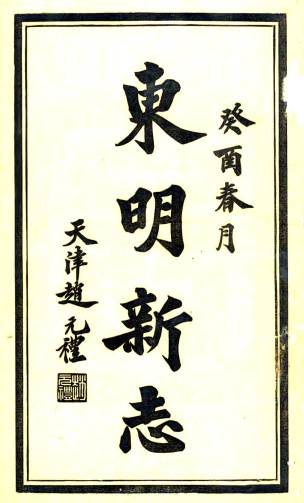 癸酉春月
東明新志
天津趙元禮